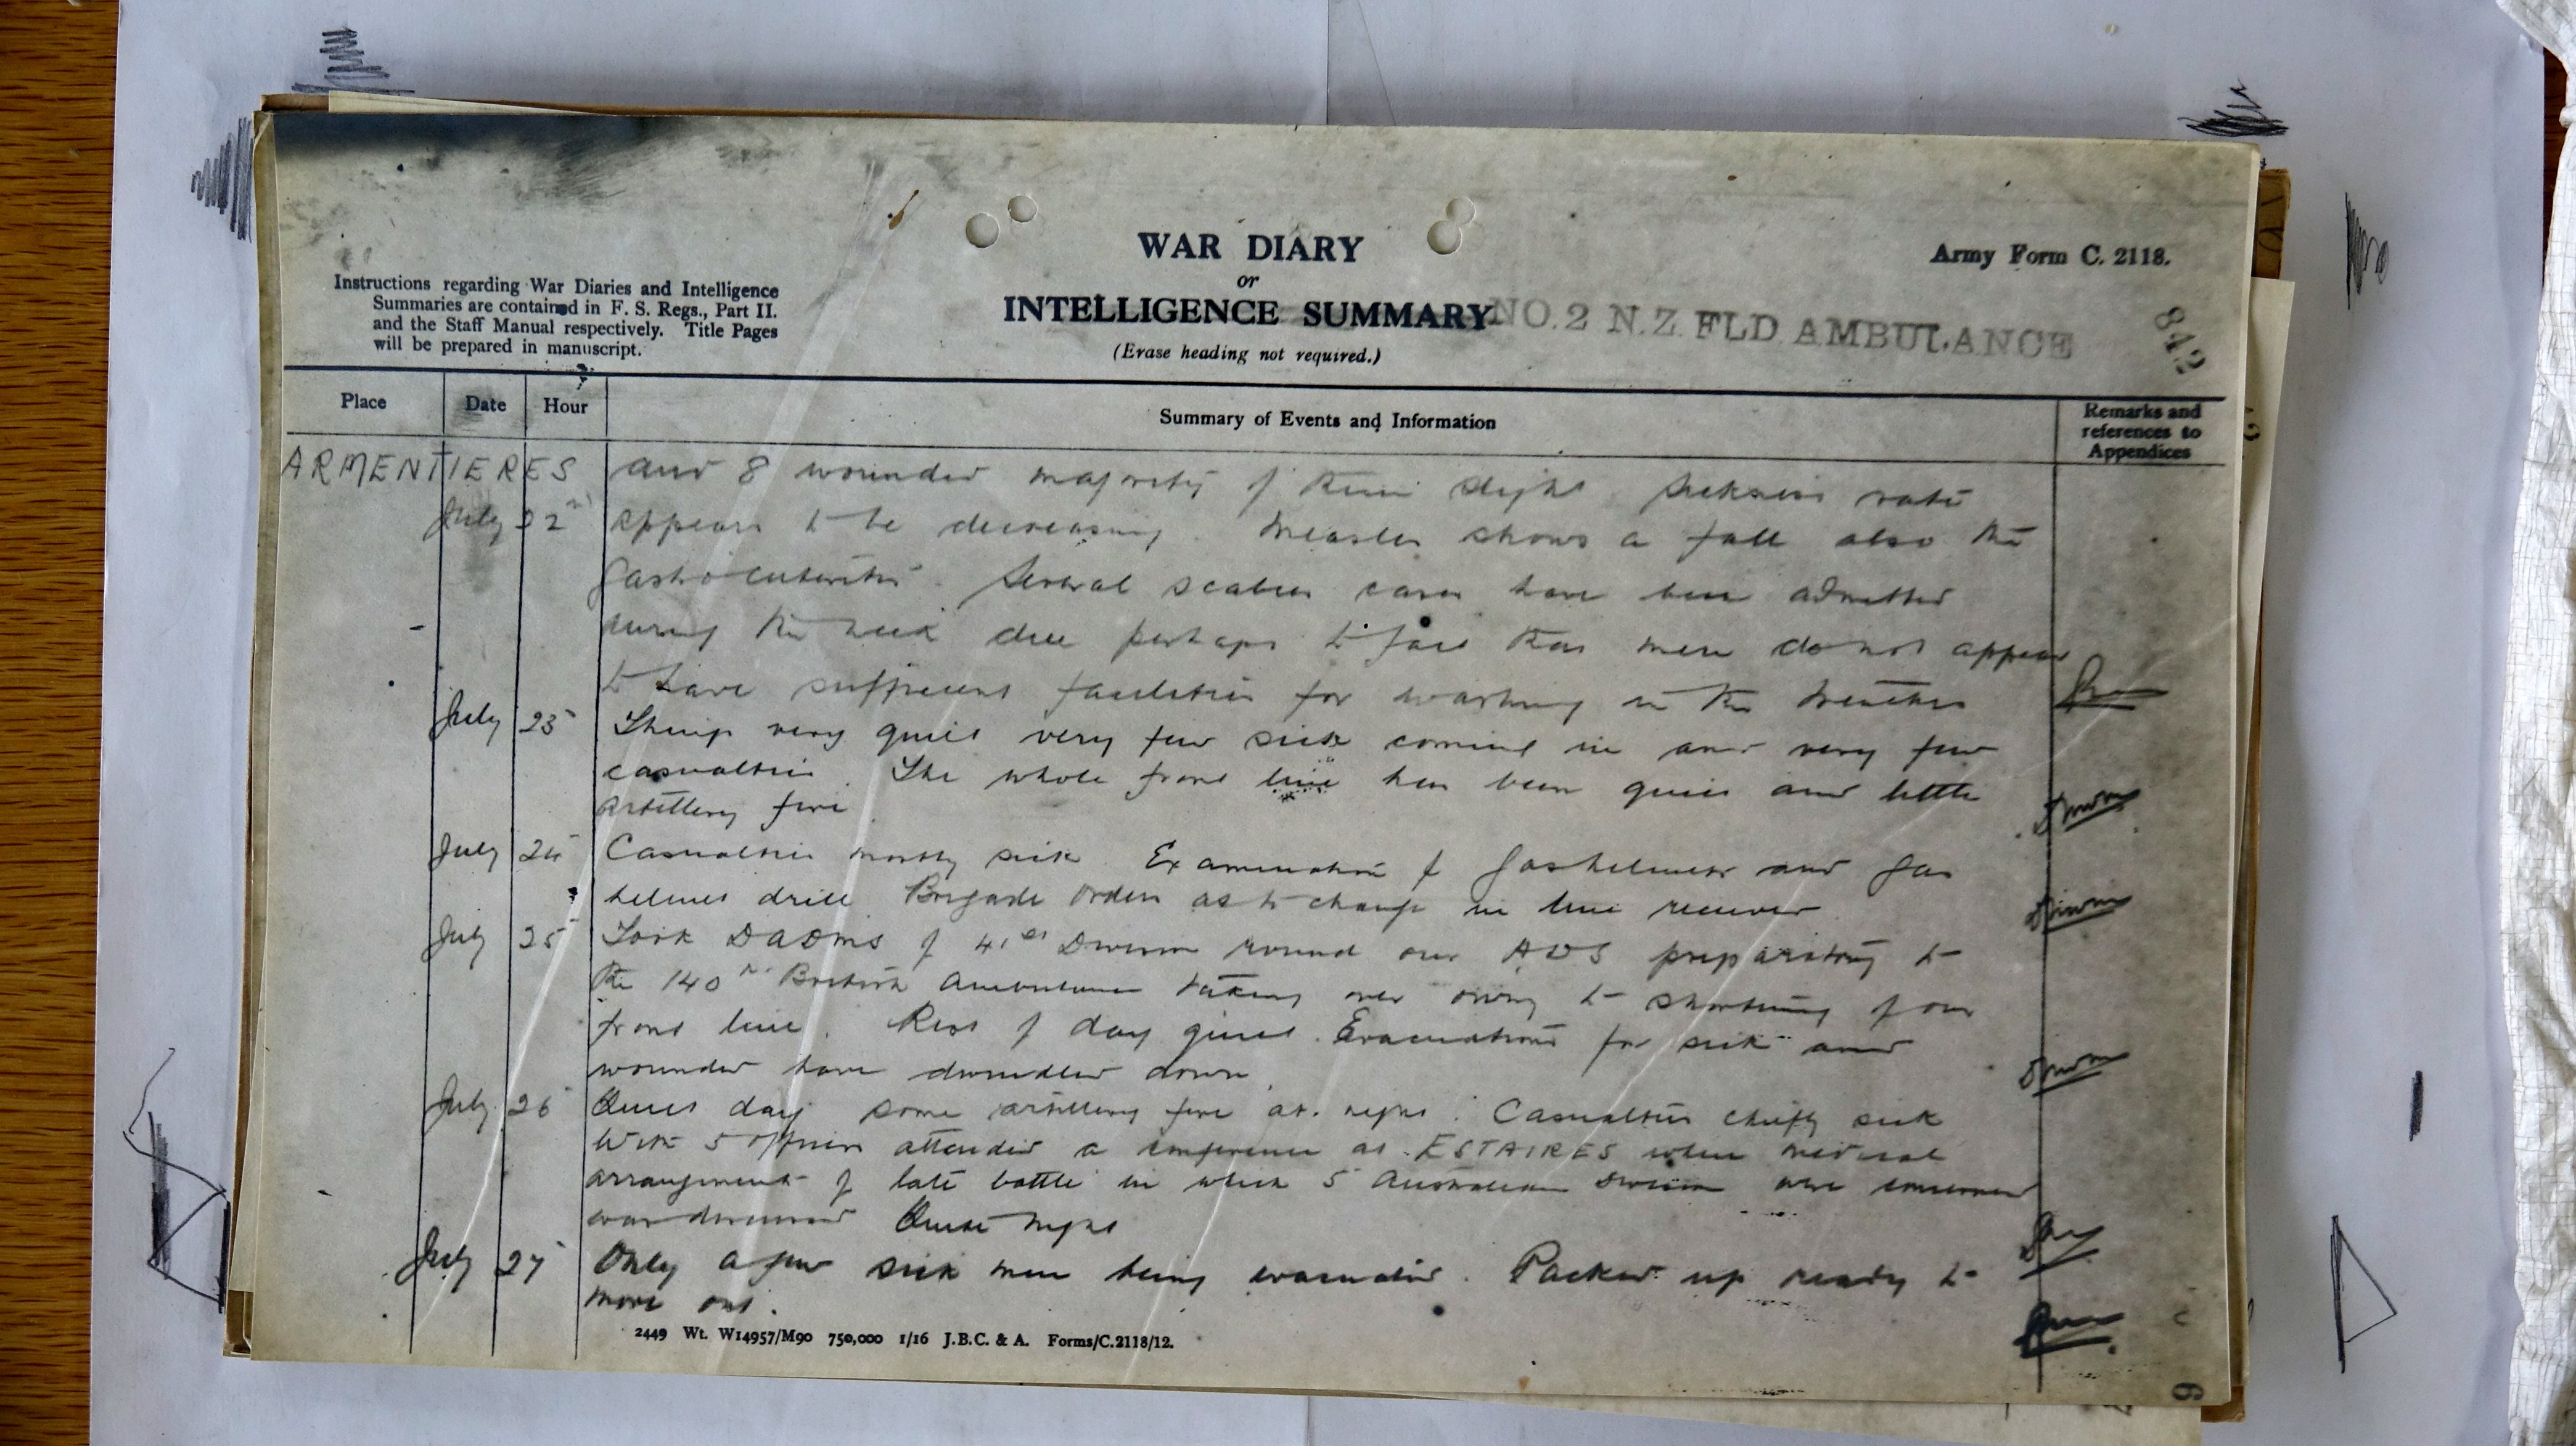 WAR DIARY
or
INTELLIGENCE SUMMARY
(Erase heading not required.)
Army Form C. 2118.
NO. 2 N.Z. FLD. AMBULANCE
842
Instructions regarding War Diaries and Intelligence
Summaries are contained in F. S. Regs., Part II.
and the Staff Manual respectively. Title Pages
will be prepared in manuscript.
Place Date Hour Summary of Events and Information Remarks and references to Appendices
ARMENTIERES and 8 wounded majority of them slight Sickness rate
July 22nd appears to be decreasing. Measles shows a fall also the
Gastro enteritis. Several scabies cases have been admitted
during the week due perhaps to fact that men do not appear
to have sufficient facilities for washing in the trenches
July 23 Things very quiet very few sick coming in and very few
casualties. The whole front line has been quiet and little
artillery fire
July 24 Casualties mostly sick. Examination of Gas helmets and gas
helmet drill Brigade orders as to change in line received
July 25 Took DADMS of 41st Division round our ADS preparatory to
the 140th British Ambulance taking over owing to shortening of our
front line. Rest of day quiet. Evacuations for sick and
wounded have dwindled down.
July 26 Quiet day some artillery fire at night. Casualties chiefly sick
With 5 officers attended a conference at ESTAIRES when medical
arrangements of late battle in which 5 Australian Division were concerned
was discussed Quiet night
July 27 Only a few sick men being evacuated. Packed up ready to
move out.
2449 Wt. W14957/M90 750,000 1/16 J.B.C. & A. Forms/C.2118/12.